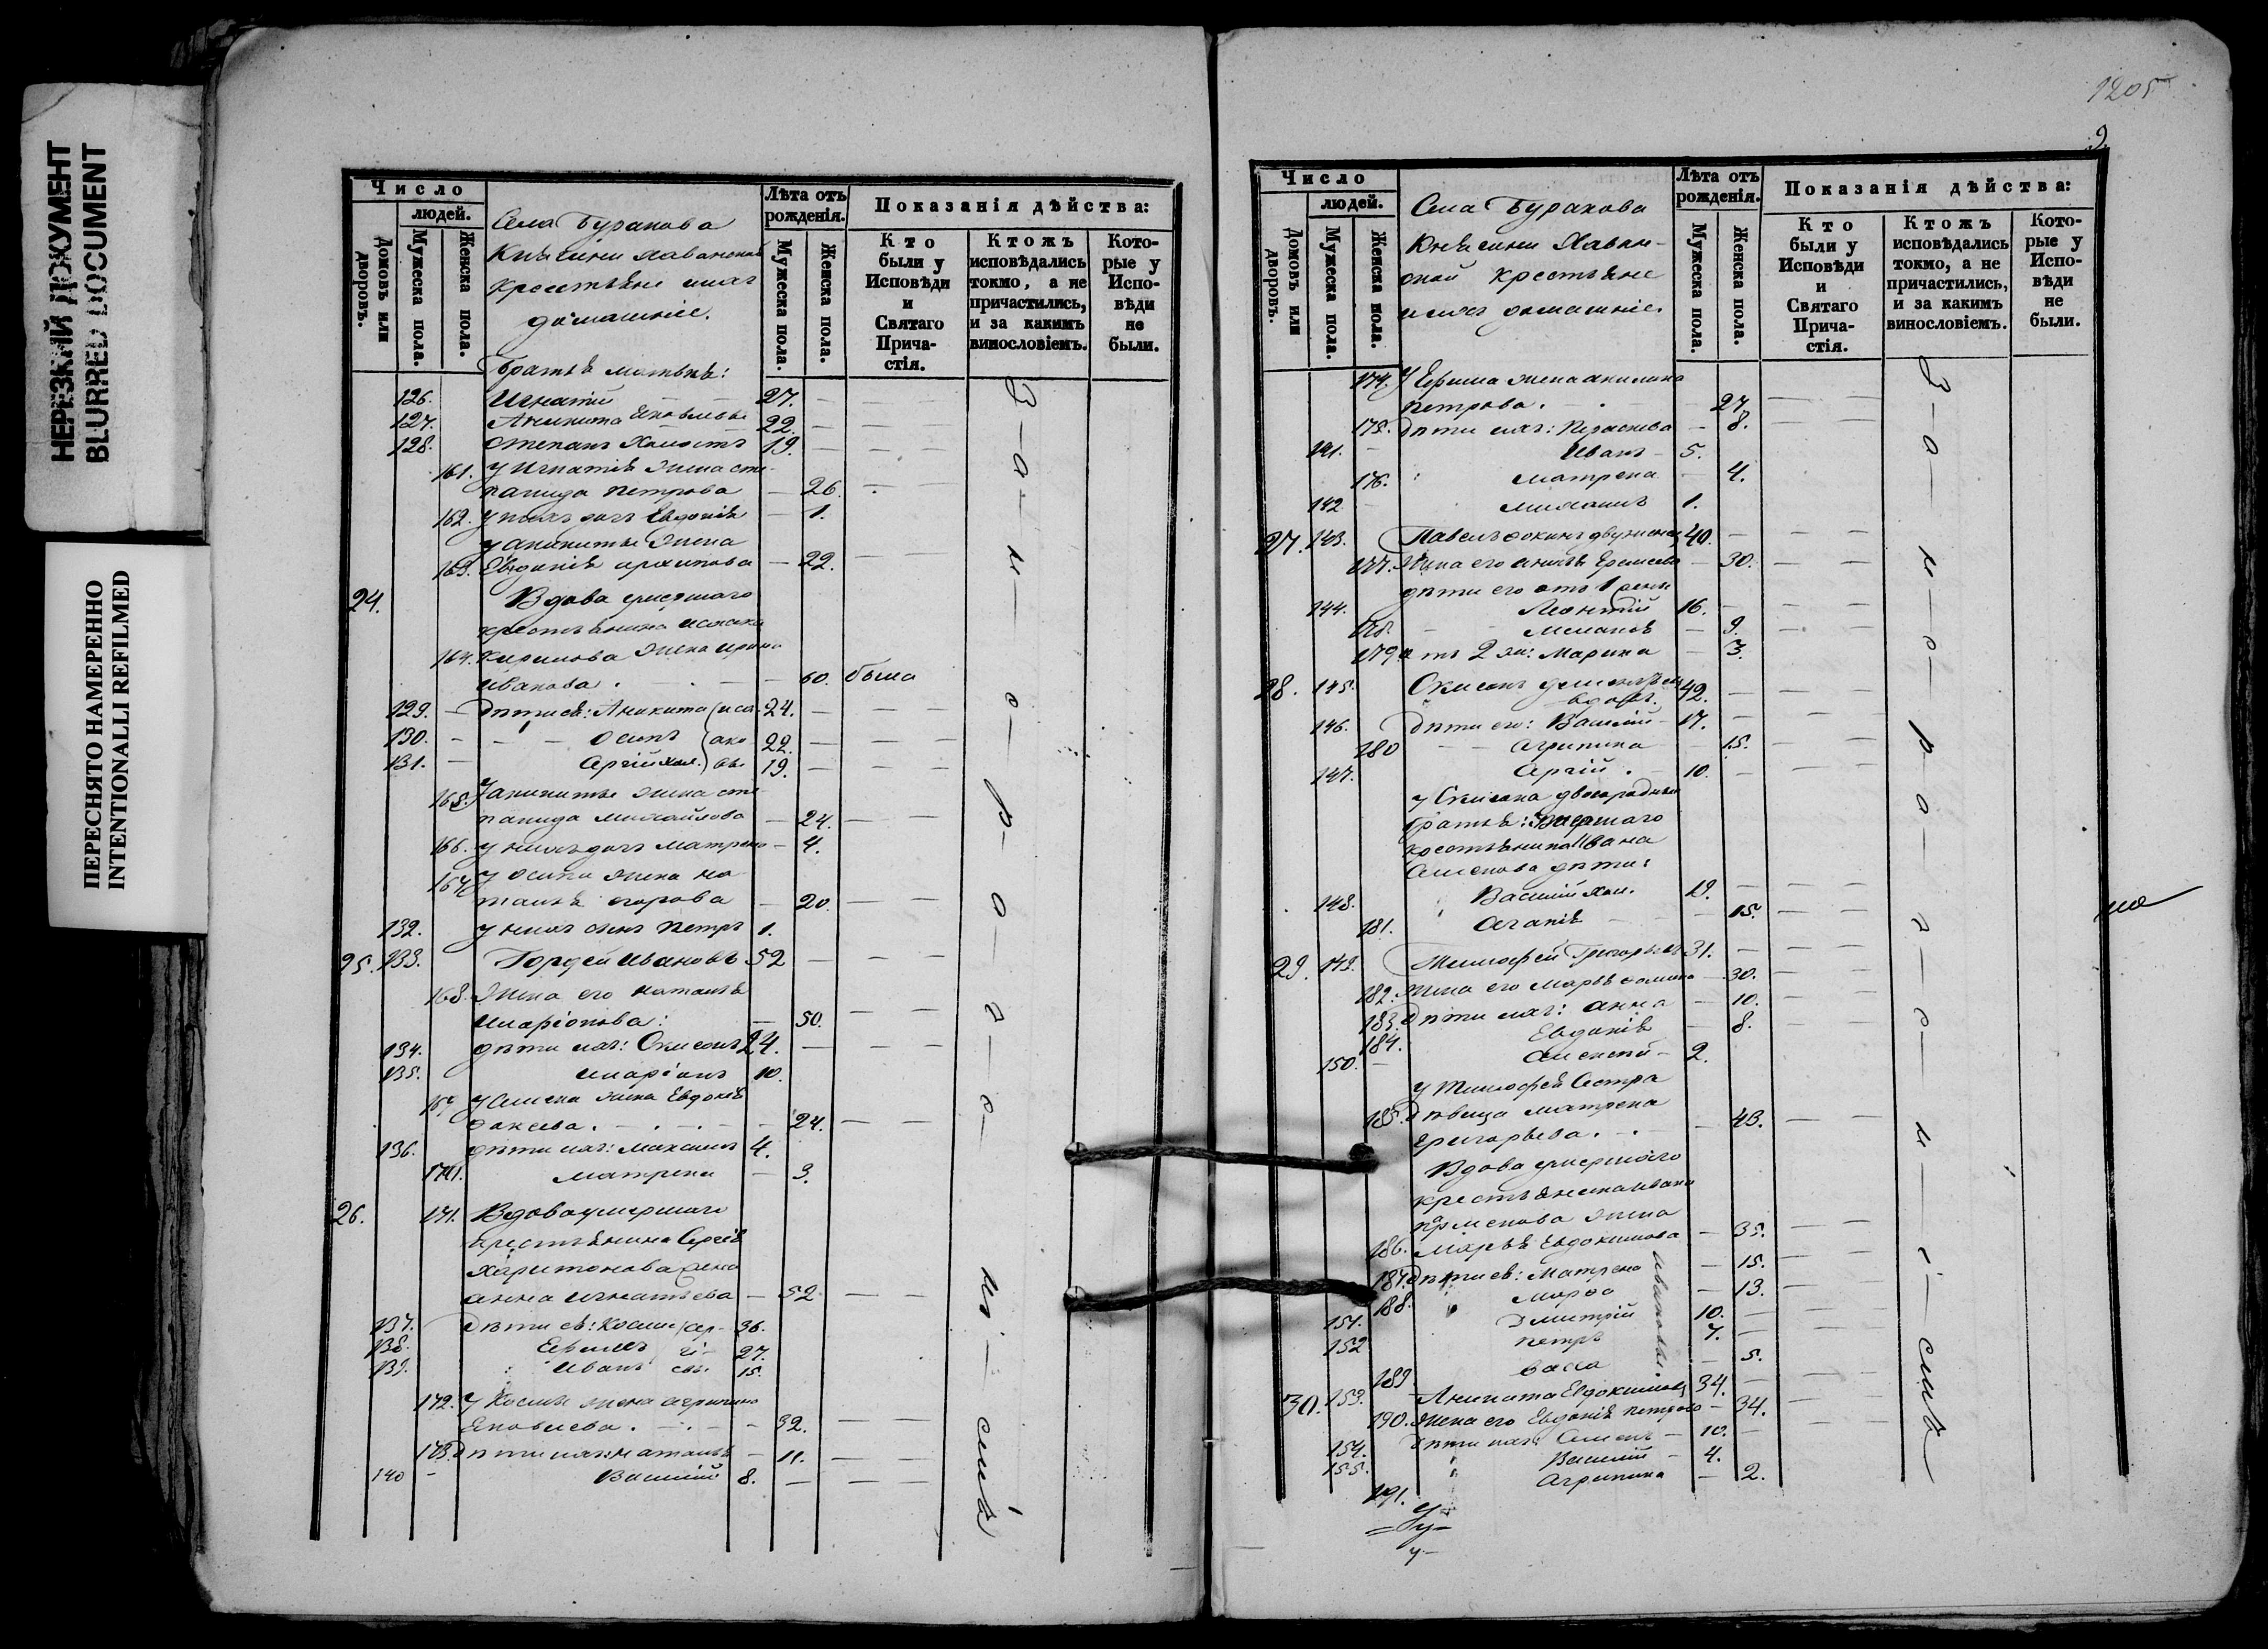 НЕРЕЗКИЙ ДОКУМЕНТ
BLURRED DOCUMENT
ПЕРЕСНЯТО НАМЕРЕННО
INTENTIONALLI REFILMED
Число
людей.
Домовъ или дворовъ.
Мужеска пола.
Женска пола.
Села Буракова
Княгини
крестьяне ихъ
домашніе.
Лѣта отъ рожденія.
Мужеска пола.
Женска пола.
Показанія дѣйства:
Кто были у Исповѣди и Святаго Прича-стія.
Ктожъ исповѣдались токмо, а не причастились, и за какимъ винословіемъ.
Кото-рые у Испо-вѣди не были.
Братья
126. Игнатій 27.
127. Аникита Яковлевы 22.
128. Степанъ Холостъ 19.
161. У Игнатія жена Сте-
панида Петрова — 26.
162. У нихъ дочь Евдокія — 1.
У Аникиты жена
163. Евдокія Архипова — 22.
24. Вдова умершаго
крестьянина Исаака
164. Кирилова жена Ирина
Иванова. — 60. была
129. Дѣти ея: Аникита Иса- 24.
130. Осипъ ако 22.
131. Сергій хол. вы 19.
165. У Аникиты жена Сте
панида Михайлова — 24.
166. У нихъ дочь Матрена — 4.
167. У Осипа жена На
талья Егорова — 20.
132. У нихъ сынъ Петръ 1.
25. 133. Гордей Ивановъ 52
168. Жена его Наталья
Иларіонова: — 50.
134. Дѣти ихъ: Симеонъ 24.
135. Иларіонъ 10.
169. У Симеона жена Евдокія
— 24.
136. Дѣти ихъ: Максимъ 4.
170. Матрена — 3.
26. 171. Вдова умершаго
крестьянина Сергія
Харитонова жена
Анна Игнатьева — 52
137. Дѣти ея: Косма Сер- 36.
138. Ефимъ гі- 27.
139. Иванъ евы. 15.
172. У Космы жена Агрипина
Яковлева. — 32.
173. Дѣти ихъ: Наталья — 11.
140 — Василій 8.
За не со ро до сти смѣ
1205
9
Число
людей.
Домовъ или дворовъ.
Мужеска пола.
Женска пола.
Села Буракова
Княгини
крестьяне
ихъ домашніе.
Лѣта отъ рожденія.
Мужеска пола.
Женска пола.
Показанія дѣйства:
Кто были у Исповѣди и Святаго Прича-стія.
Ктожъ исповѣдались токмо, а не причастились, и за какимъ винословіемъ.
Кото-рые у Испо-вѣди не были.
174. У Ефима жена Акилина
Петрова. — 27.
175. Дѣти ихъ: Параскева — 8.
141. Иванъ — 5.
176. Матрена — 4.
142 Михаилъ 1.
27. 143. Павелъ Фокинъ двуженец 40.
177. Жена его Еремеева — 30.
дѣти его отъ 1 жены
144. Леонтій 16.
178. Меланія — 9.
179. отъ 2 жи: Марина — 3.
28. 145. Симеонъ
вдовъ. 42.
146. Дѣти его: Василій — 17.
180 Агрипина — 15.
147. Сергій . 10.
У Симеона двоюродные
братья: Умершаго
крестьянина Ивана
Семенова дѣти:
148. Василій хол. 19.
181. Агапія — 15.
29. 149. Тимофей Григорьевъ 31.
182. Жена его Марья Фомина — 30.
183. Дѣти ихъ: Анна — 10.
184. Евдокія — 8.
150 — Алексей — 2.
У Тимофея Сестра
185. Дѣвица Матрена
Григорьева. — 43.
Вдова умершаго
крестьянина Ивана
Парменова жена
186. Марья Евдокимова — 35.
187. Дѣти ея: Матрена — 15.
188. Марфа — 13.
151. Дмитрій 10.
152 Петръ 7.
189. Васса — 5.
Ивановы
30. 153. Аникита Евдокимовъ 34.
190. Жена его Евдокія Петрова — 34.
154. Дѣти ихъ: Семенъ — 10.
155. Василій — 4.
191. Агрипина — 2.